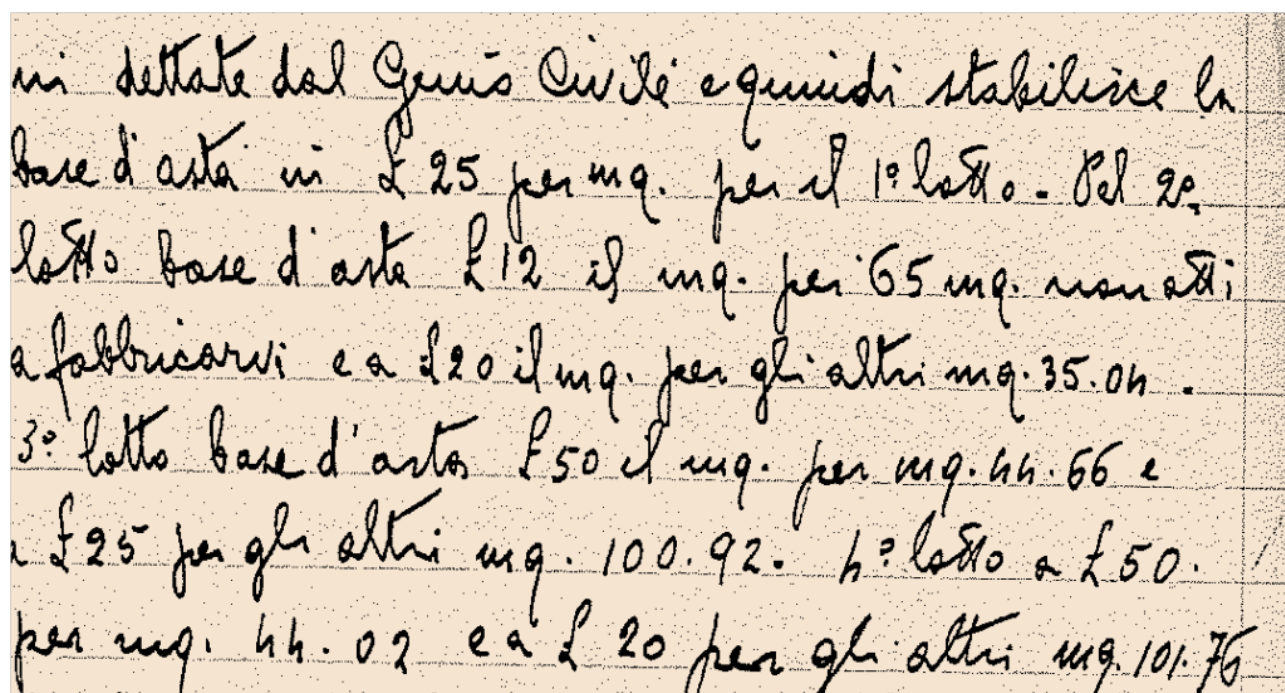 ni dettate dal Genio Civile e quindi stabilisce la
base d'asta in £ 25 per mq. per il 1º lotto - Pel 2º
lotto base d'asta £ 12 il mq. per 65 mq. non atti
a fabbricarvi e a £ 20 il mq. per gli altri mq. 35.04 -
3º lotto base d'asta £ 50 il mq. per mq. 44.66 e
a £ 25 per gli altri mq. 100.92. 4º lotto a £ 50.
per mq. 44.02 e a £ 20 per gli altri mq. 101.76